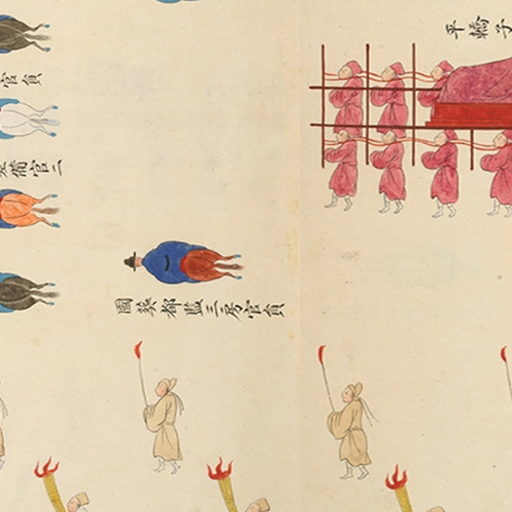 平轎子
國葬都監三房官員
官員
備官二